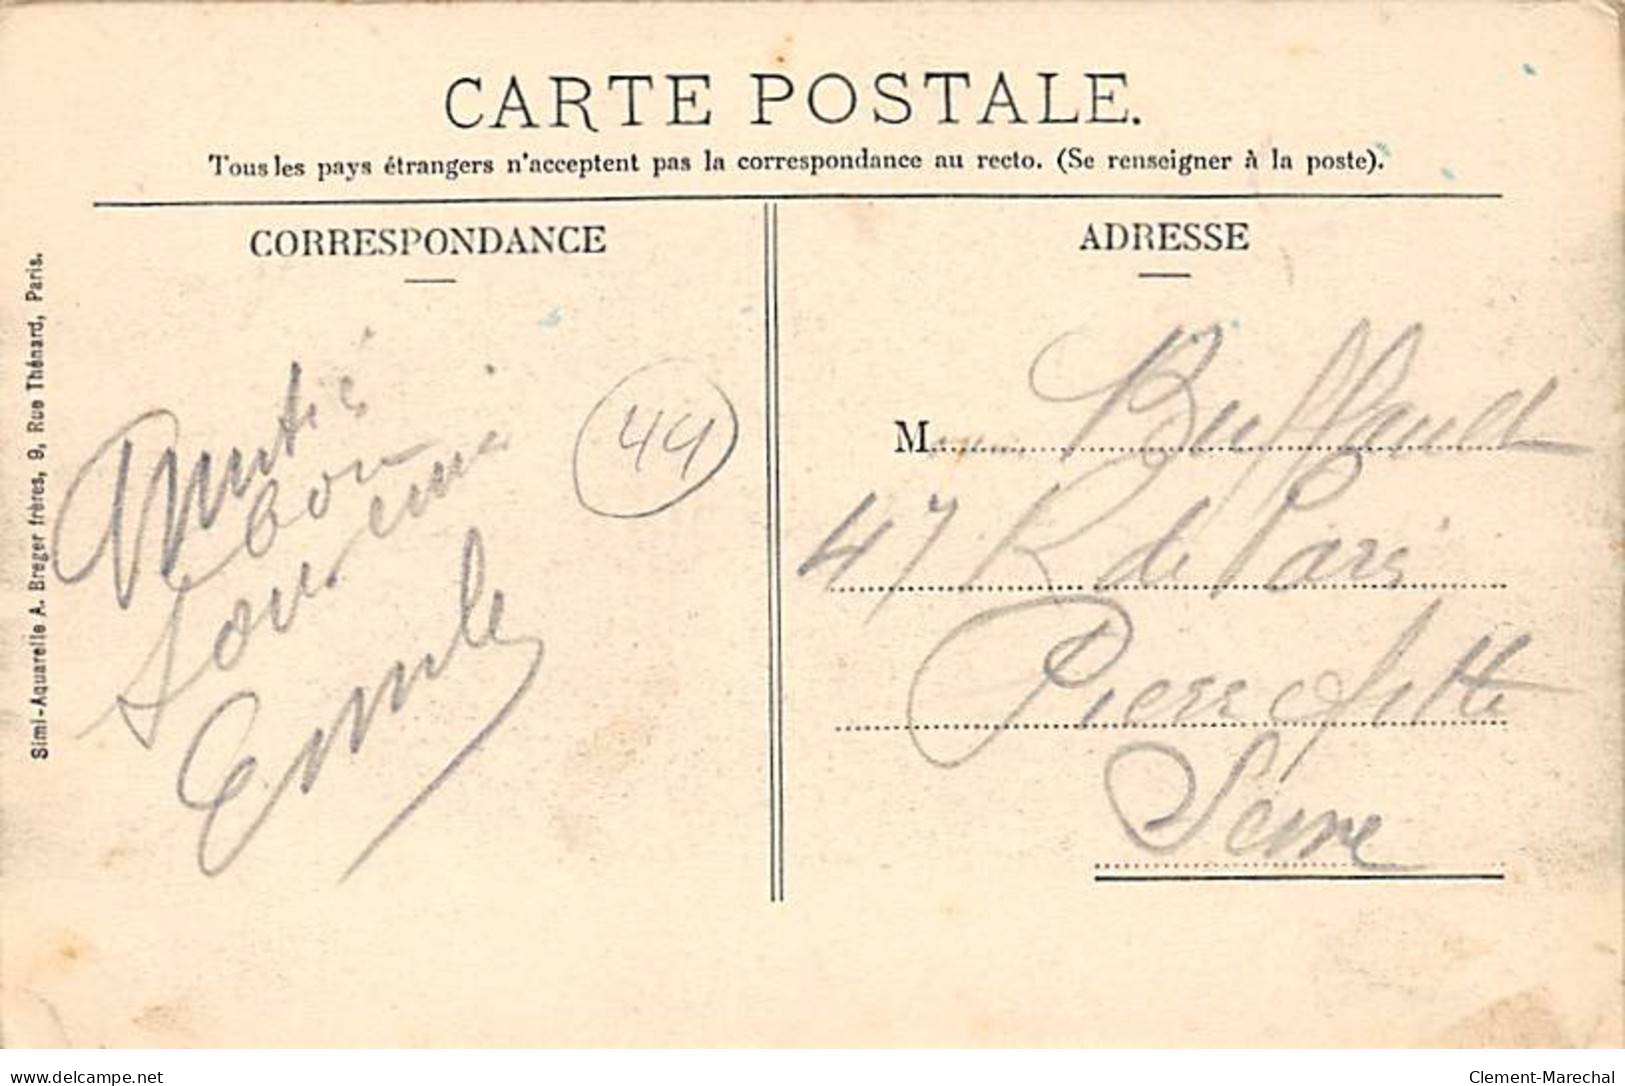 CARTE POSTALE.
Tous les pays étrangers n'acceptent pas la correspondance au recto. (Se renseigner à la poste).
CORRESPONDANCE
Amitié
bon
souvenir
Emile
44
ADRESSE
M Buffault
47 R de Paris
Pierrefitte
Seine
Simi-Aquarelle A. Breger frères, 9, Rue Thénard, Paris.
delcampe.net
Clement-Marechal